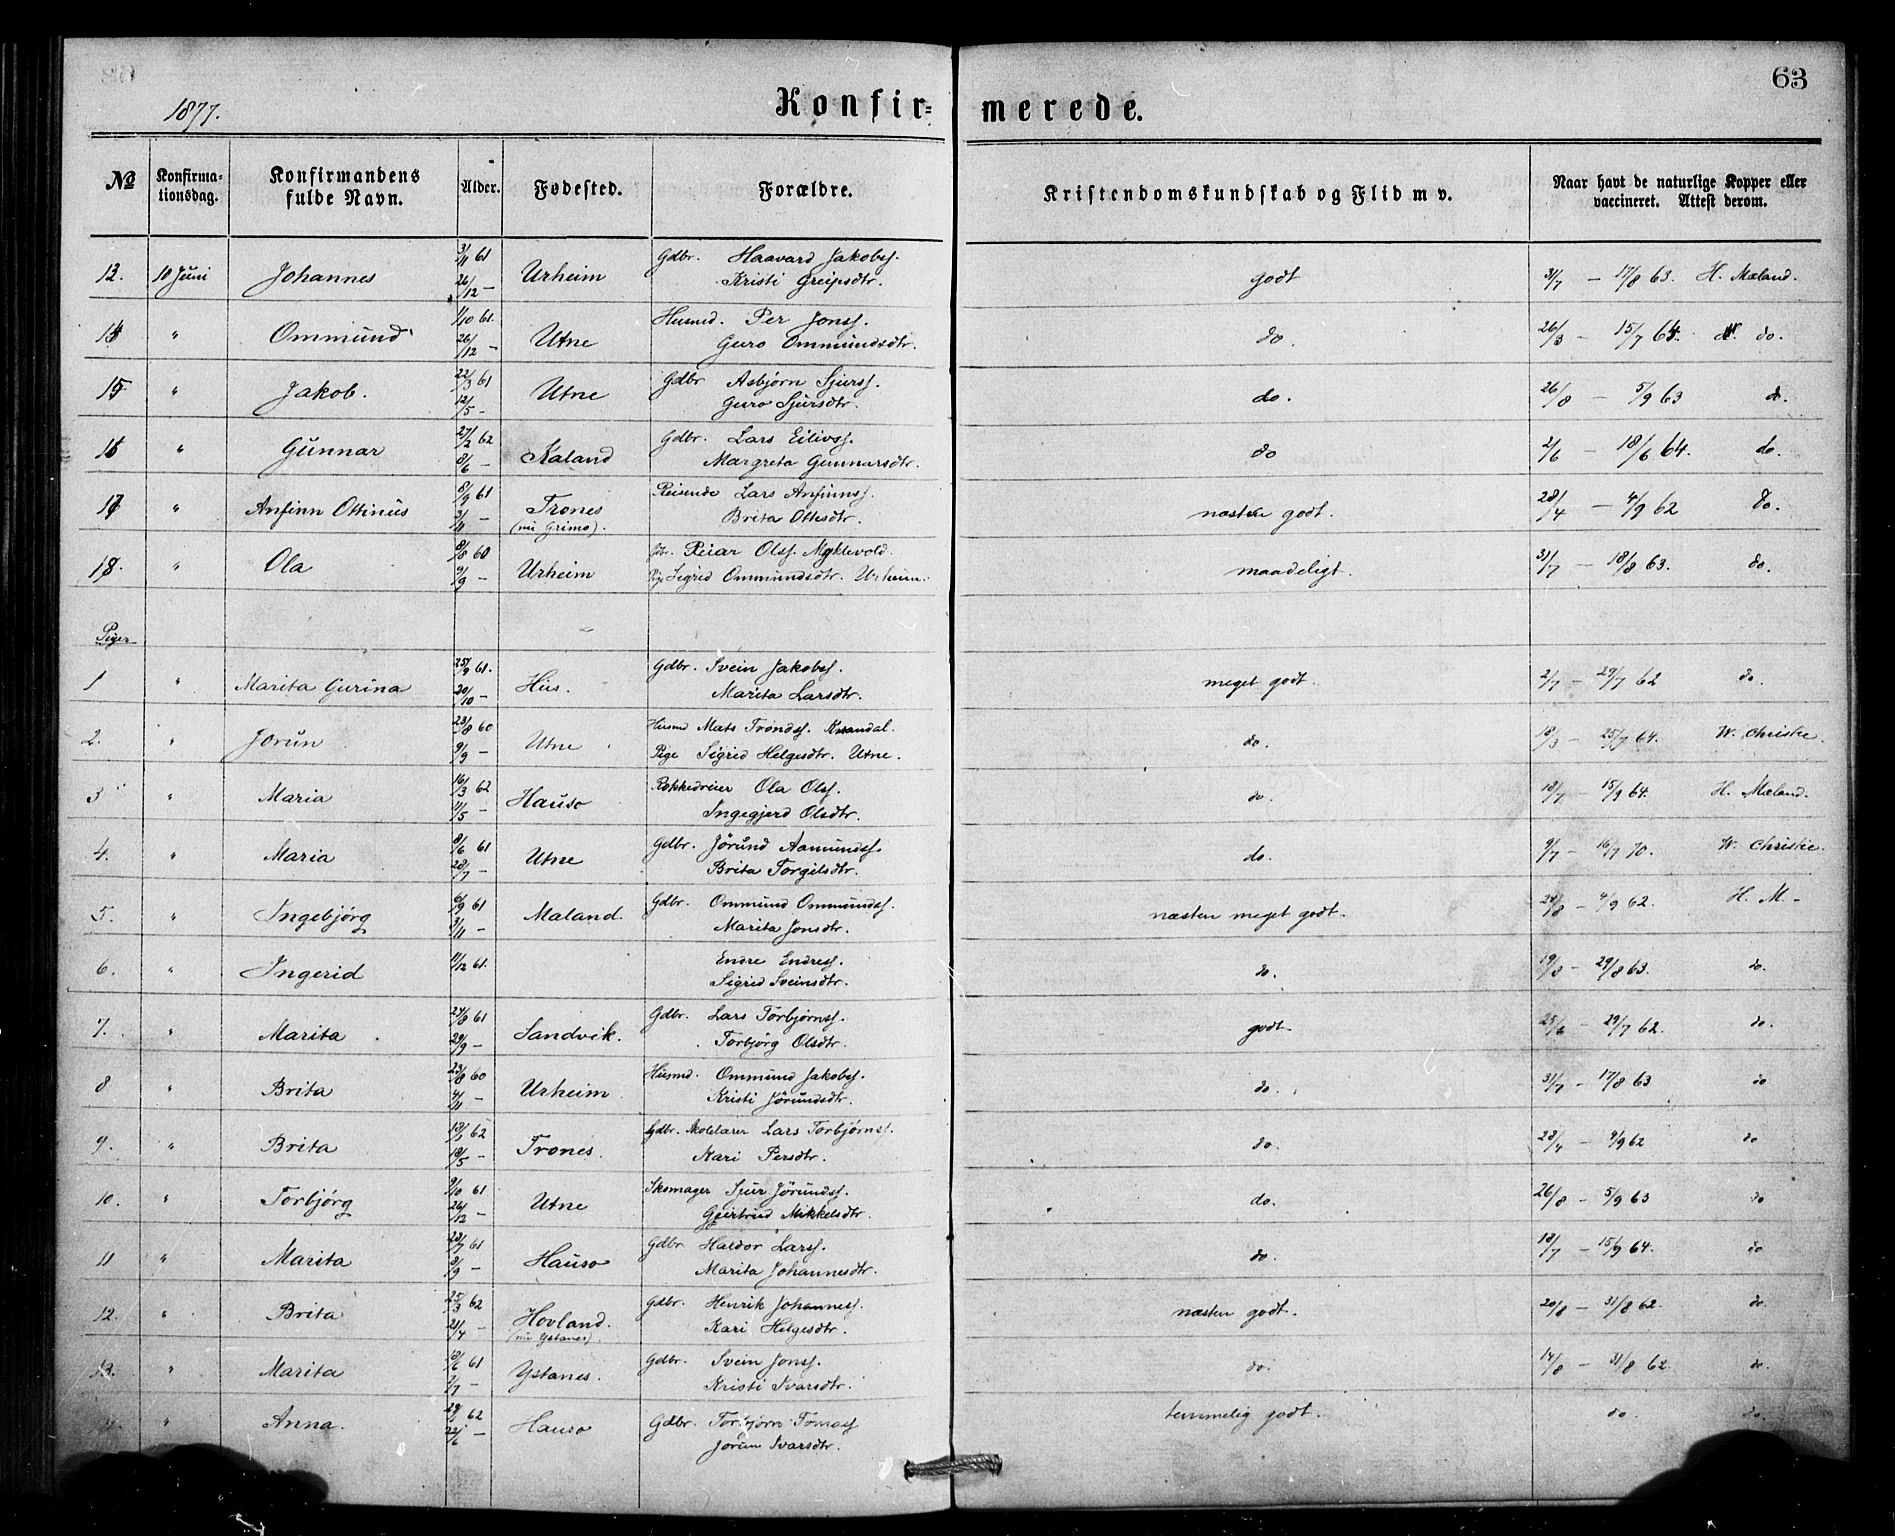 63
1877.
Konfir= merede.
No Konfirma-tionsdag. Konfirmandens fulde Navn. Alder. Fødested. Forældre. Kristendomskundskab og Flid m v. Naar havt de naturlige Kopper eller vaccineret. Attest derom.
13. 10 Juni Johannes 3/11 61 Urheim Gdbr. Haavard Jakobs. godt 31/7 — 17/8 63. H. Mæland.
26/12 — Kristi Greipsdtr.
14 " Ommund 1/10 61. Utne Husmd. Per Jonss. do. 26/3 — 15/7 64. do.
26/12 — Guro Ommundsdtr.
15 " Jakob. 22/3 61 Utne Gdbr Asbjørn Sjurss. do. 26/8 — 5/9 63 do.
12/5 — Guro Sjursdtr.
16 " Gunnar 27/2 62 Kaland Gdbr. Lars Eilivss. do 2/6 — 18/6 64. do.
8/6 — Margreta Gunnarsdtr.
17 " Anfinn Ottinus 8/9 61 Trones Reisende Lars Anfinnss. næsten godt. 28/4 — 4/9 62 Do.
3/11 — (nu Grimo). Brita Ottesdtr.
18. " Ola 8/8 60 Urheim Reiar Olss. Myklevold. maadeligt. 31/7 — 18/8 63. do.
9/9 — Pige Sigrid Ommundsdtr. Urheim.
Piger
1 " Marita Gurina 25/9 61. Hus. Gdbr. Svein Jakobss. meget godt. 2/7 — 29/7 62 do.
20/10 — Marita Larsdtr.
2. " Jorun 23/8 60 Utne Husmd Mats Trondss. Kvandal. do. 18/3 — 25/7 64. W. Christie.
9/9 — Pige Sigrid Helgesdtr. Utne.
3 " Maria 16/3 62 Hauso Rokkedreier Ola Olss. do. 18/7 — 15/9 64. H. Mæland.
11/5 — Ingegjerd Olsdtr.
4. " Maria 8/6 61 Utne Gdbr. Jörund Aamundss. do. 9/7 — 16/7 70. W. Christie.
28/7 — Brita Torgilsdtr.
5. " Ingebjörg 6/9 61 Maland. Gdbr. Ommund Ommundss. næsten meget godt. 28/8 — 4/9 62. H. M —
3/11 — Marita Jonsdtr.
6. " Ingerid 11/12 61. Endre Endress. do. 19/8 — 29/8 63. do.
Sigrid Sveinsdtr.
7. " Marita 24/8 61 Sandvik. Gdbr. Lars Torbjørnss. godt 25/6 — 29/7 62. do.
29/9 — Torbjörg Olsdtr.
8 " Brita 23/8 60 Urheim. Husmd. Ommund Jakobss. do. 31/7 — 17/8 63 do
4/11 — Kristi Jörundsdtr.
9. " Brita 62 Trones. Gdbr. Skolelærer Lars Torbjørnss. do 28/4 — 4/9 62 do
18/5 — Kari Persdtr.
10. " Torbjörg 9/10 61 Utne Skomager Sjur Jörundss. do. 26/8 — 5/9 63 do
26/12 — Gjertrud Mikkelsdtr.
11 " Marita 28/7 61 Hauso Gdbr Haldor Larss. do 18/7 — 15/9 64. do
8/9 — Marita Johannesdtr.
12. " Brita 25/3 62 Hovland. Gdbr. Henrik Johanness. næsten godt. 20/8 — 31/8 62. do
21/4 — (nu Ystanes). Kari Helgesdtr.
13. " Marita 18/6 61 Ystanes. Gdbr. Svein Jonss. do. 14/8 — 31/8 62 do.
7/7 — Kristi Ivarsdtr.
" Anna. 62 Hauso Gdbr. Torbjørn Tomass temmelig godt. do. do.
22/6 — Jorun Ivarsdtr.